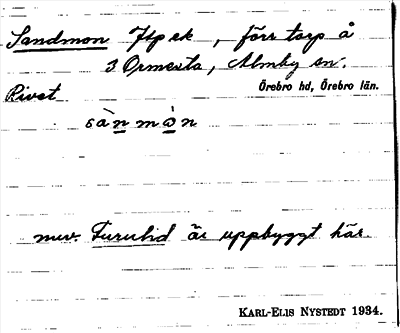 Sandmon Ftp ek, förr torp å
3 Ormesta, Almby sn.
Rivet
Örebro hd, Örebro län.
sàn mòn
nuv. Furulid är uppbyggt här.
KARL-ELIS NYSTEDT 1934.